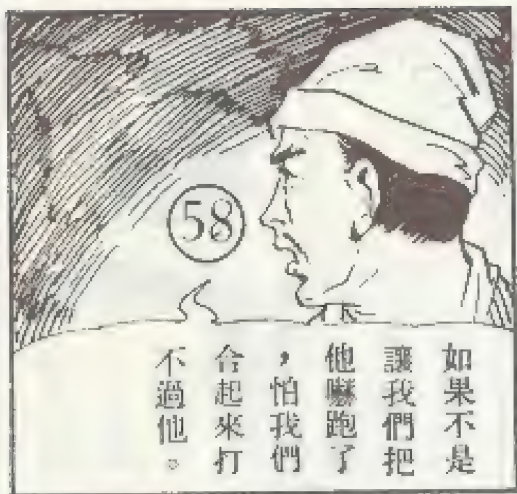 58
如果不是
讓我們把
他嚇跑了
，怕我們
合起來打
不過他。